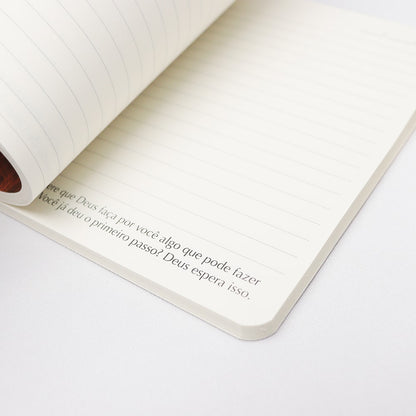 que Deus faça por você algo que pode fazer
Você já deu o primeiro passo? Deus espera isso.